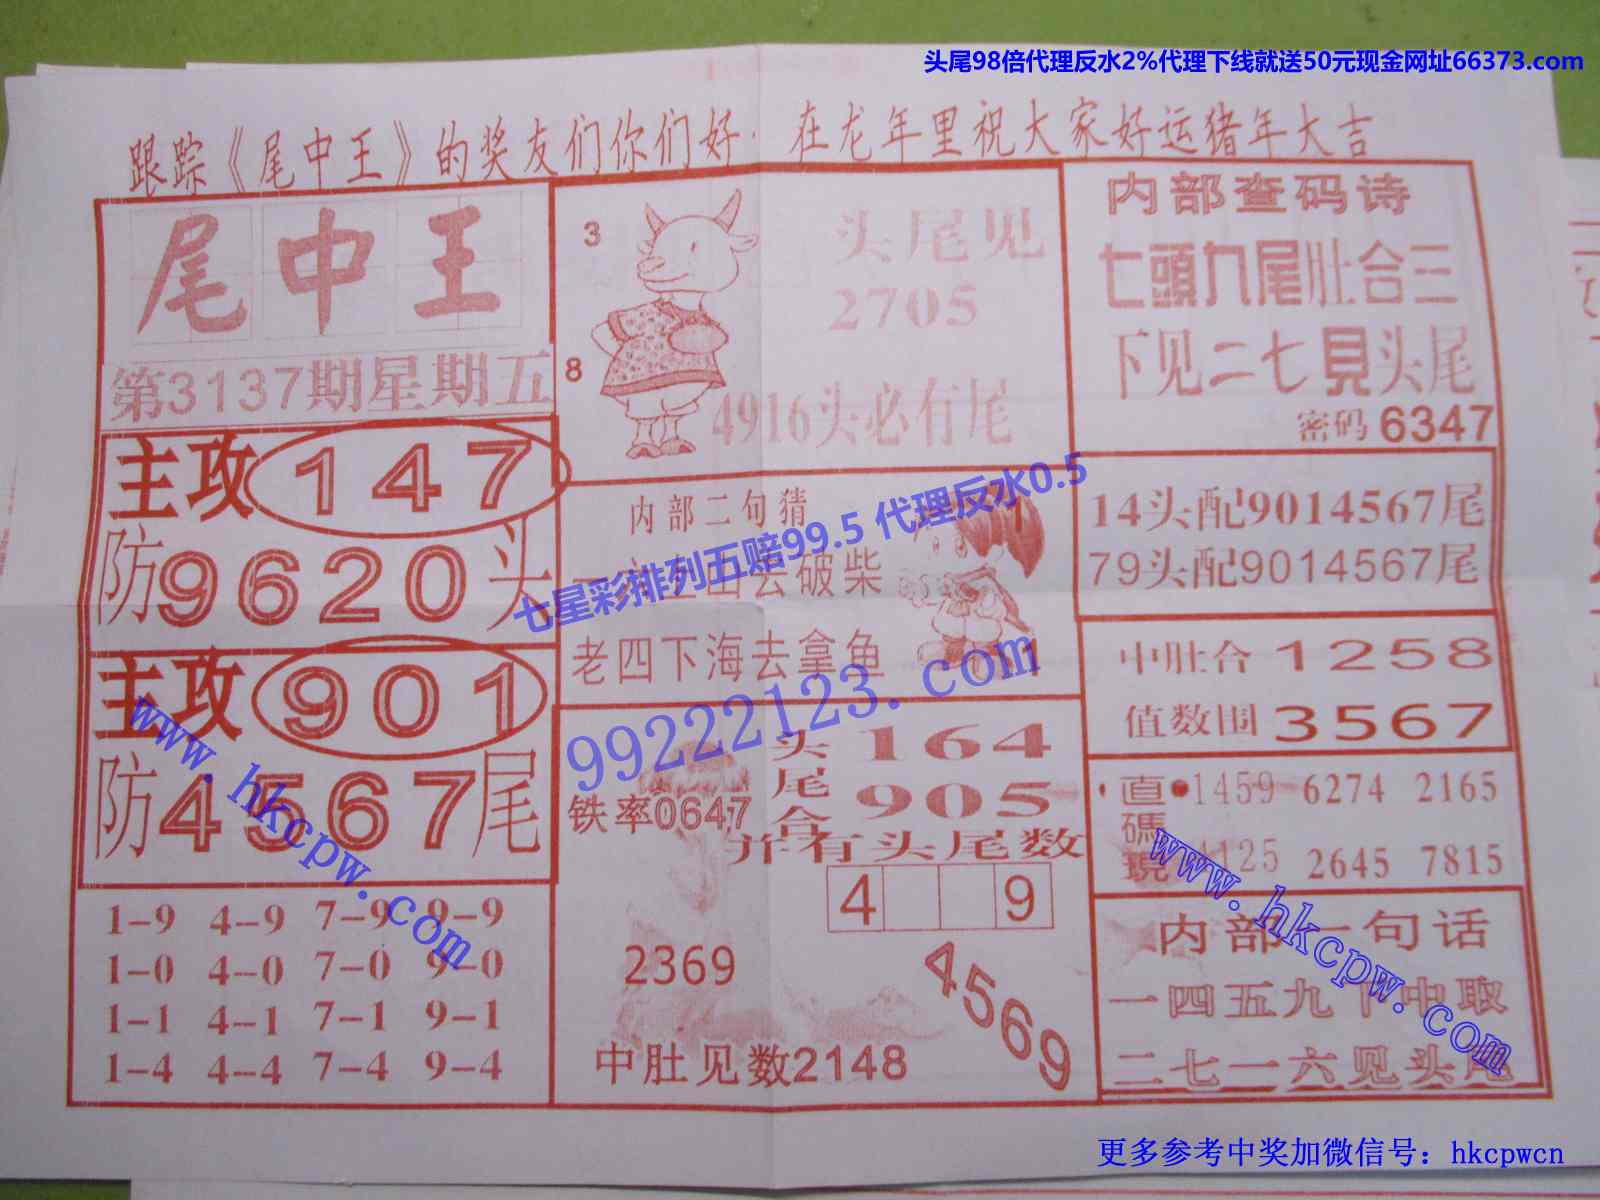 头尾98倍代理反水2%代理下线就送50元现金网址66373.com
跟踪《尾中王》的奖友们你们好.在龙年里祝大家好运猪年大吉
尾中王
第3137期星期五
主攻147
防9620头
主攻901
防4567尾
1-9 4-9 7-9 9-9
1-0 4-0 7-0 9-0
1-1 4-1 7-1 9-1
1-4 4-4 7-4 9-4
3
8
头尾见
2705
4916头必有尾
内部二句猜
去破柴
老四下海去拿鱼
七星彩排列五赔99.5 代理反水0.5
99222123.com
铁率0647
头尾合
164
905
并有头尾数
4 9
2369
4569
中肚见数2148
内部查码诗
七頭九尾肚合三
下见二七見头尾
密码6347
14头配9014567尾
79头配9014567尾
中肚合1258
值数围3567
直碼
1459 6274 2165
2645 7815
内部一句话
一四五九下中取
二七一六见头尾
www.hkcpw.com
www.hkcpw.com
更多参考中奖加微信号：hkcpwcn